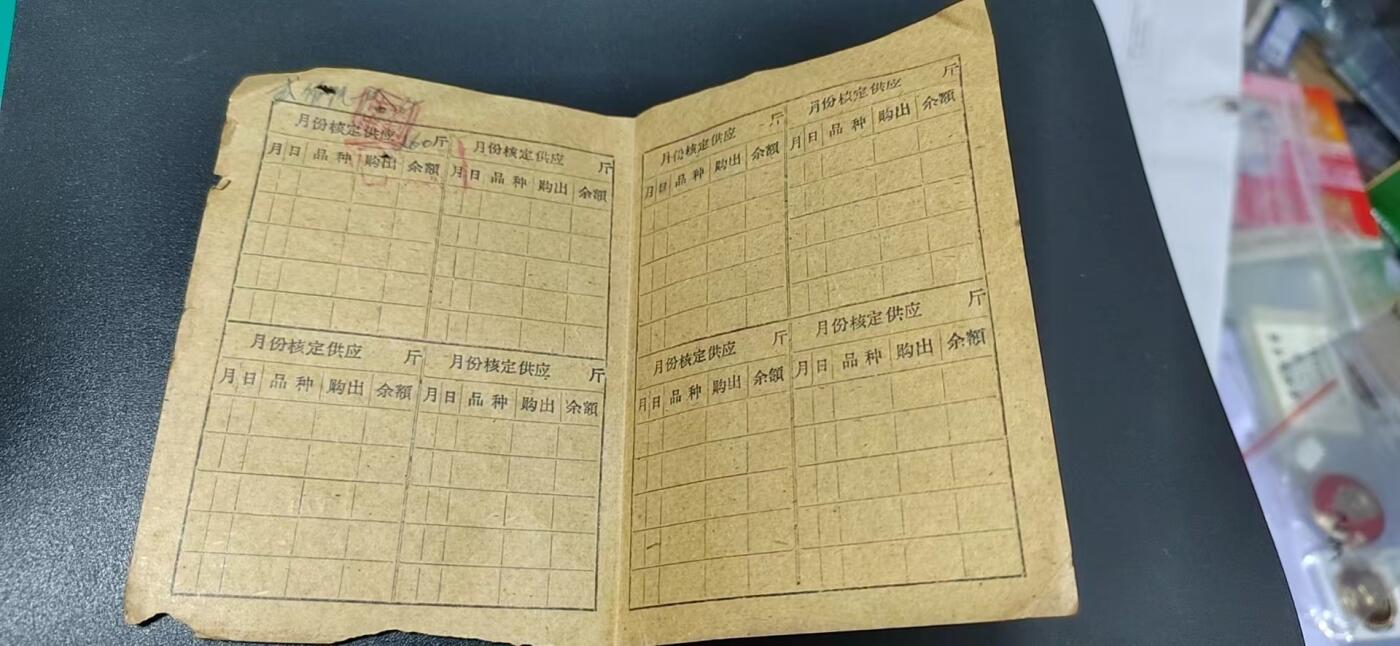 月份核定供应 60斤
月日 品种 购出 余额
月份核定供应 斤
月日 品种 购出 余额
月份核定供应 斤
月日 品种 购出 余额
月份核定供应 斤
月日 品种 购出 余额
月份核定供应 斤
月日 品种 购出 余额
月份核定供应 斤
月日 品种 购出 余额
月份核定供应 斤
月日 品种 购出 余额
月份核定供应 斤
月日 品种 购出 余额